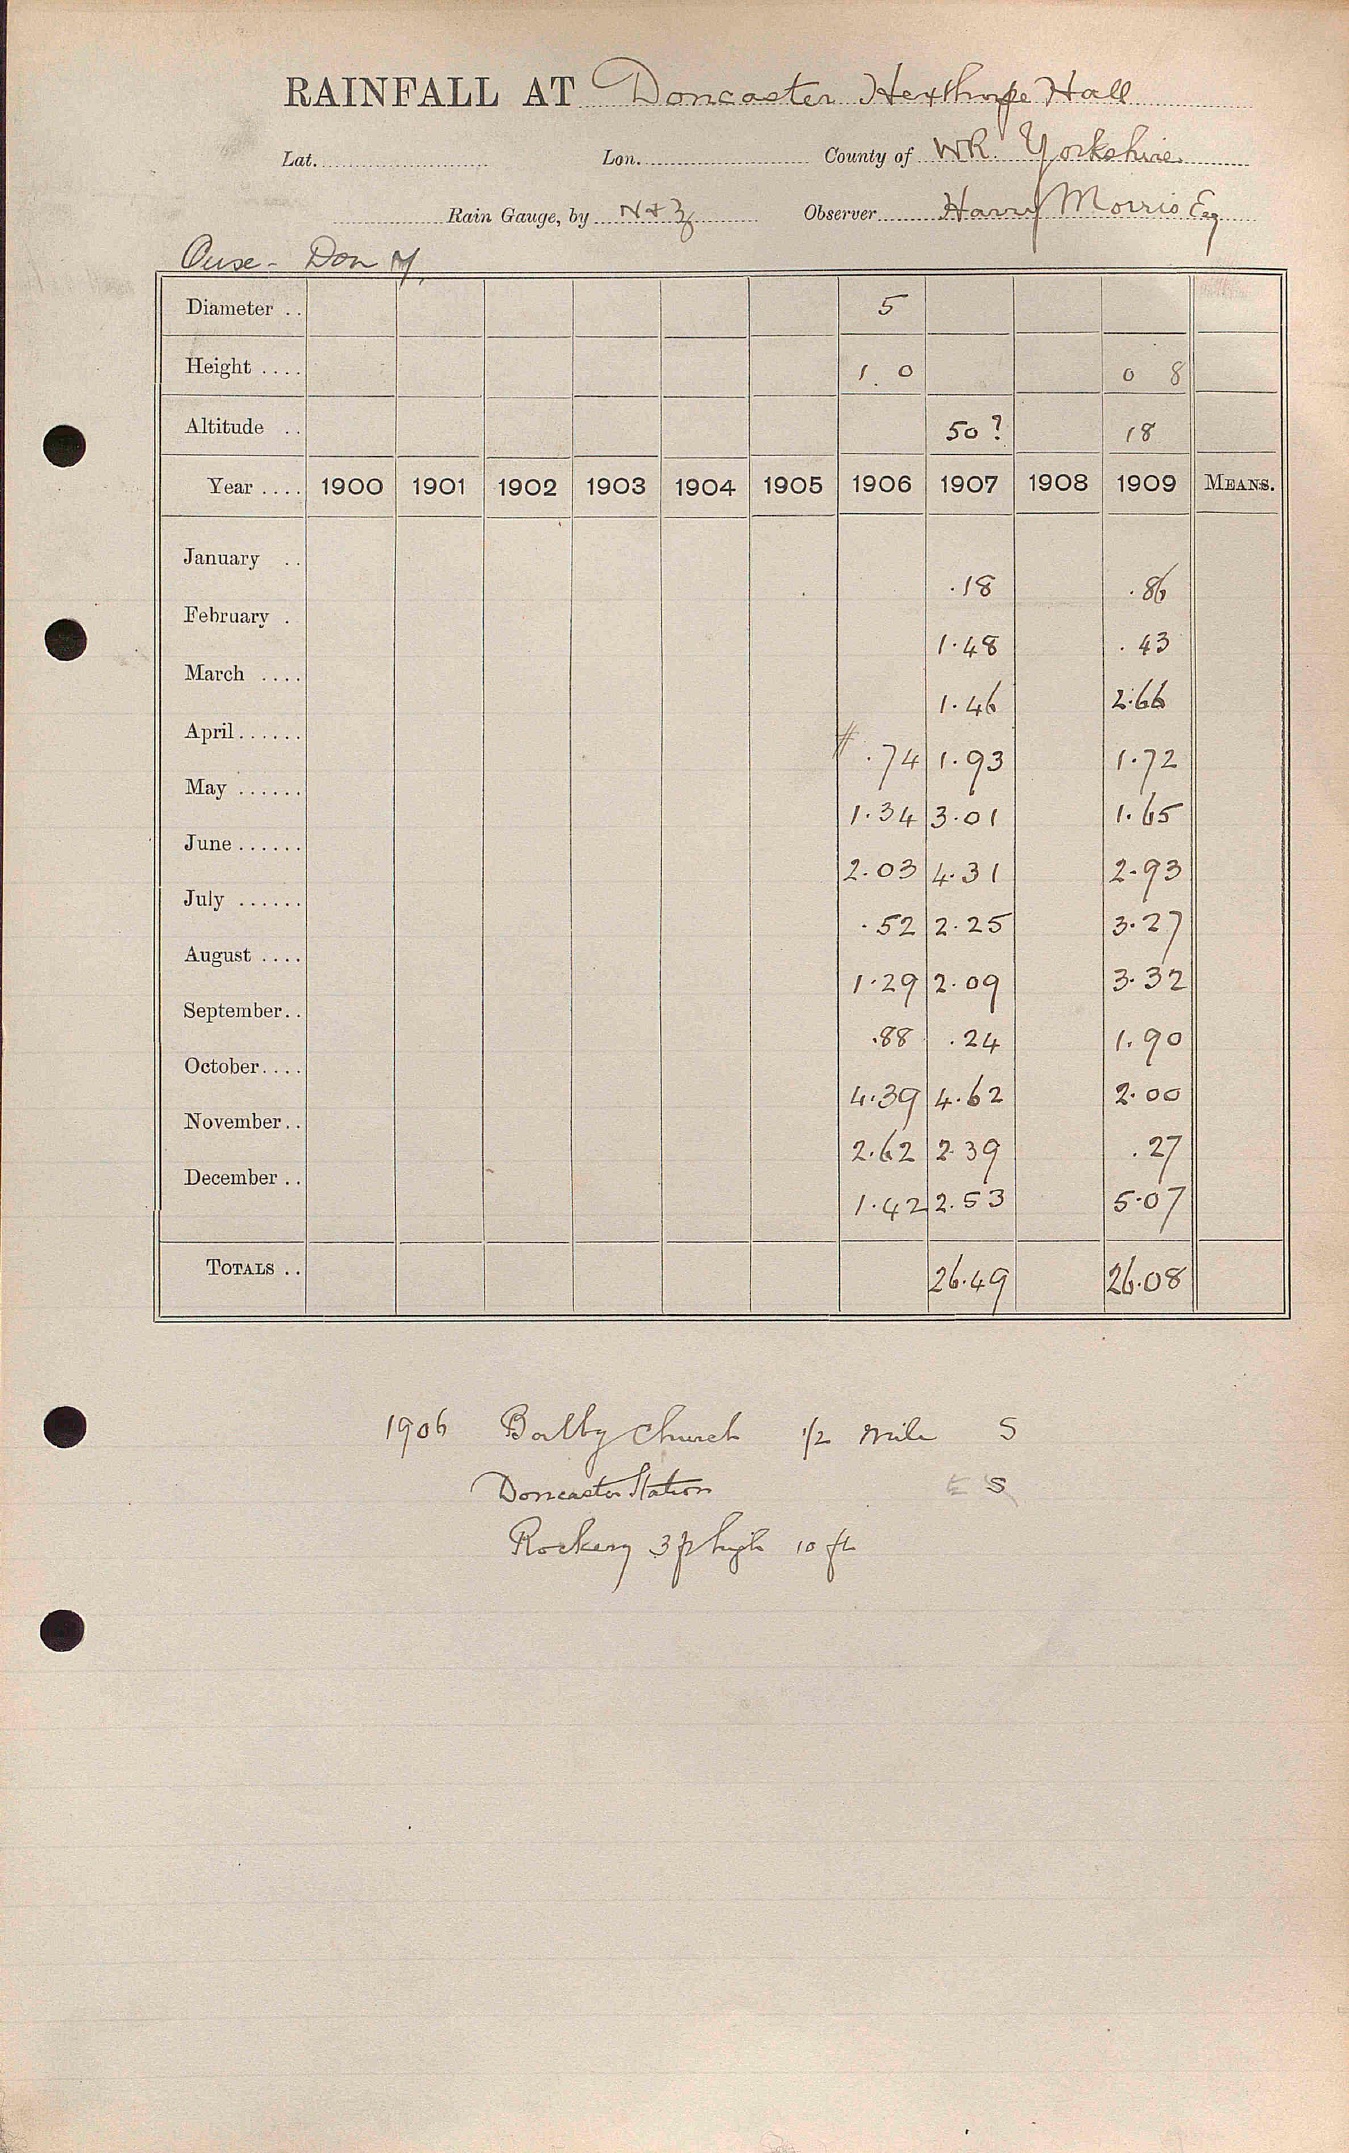 RAINFALL AT Doncaster Hexthorpe Hall
Lat. Lon. County of WR. Yorkshire
Rain Gauge, by N+Z Observer Harry Morris Esq
Ouse - Don
Diameter .. 5
Height .... 1. 0 0 8
Altitude .. 50? 18
Year .... 1900 1901 1902 1903 1904 1905 1906 1907 1908 1909 MEANS.
January .. .18 .86
February . 1.48 .43
March .... 1.46 2.66
April...... # .74 1.93 1.72
May ...... 1.34 3.01 1.65
June ...... 2.03 4.31 2.93
July ...... .52 2.25 3.27
August .... 1.29 2.09 3.32
September.. .88 .24 1.90
October.... 4.39 4.62 2.00
November.. 2.62 2.39 .27
December .. 1.42 2.53 5.07
TOTALS .. 26.49 26.08
1906 Balby Church 1/2 mile S
Doncaster Station S
Rockery 3 ft high 10 ft